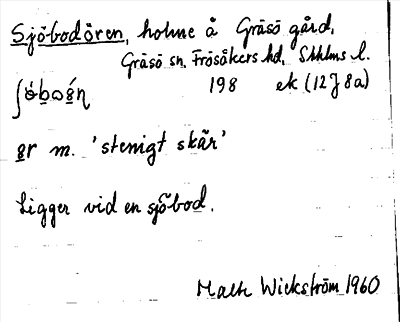 Sjöbodören, holme å Gräsö gård,
Gräsö sn, Frösåkers hd, Sthlms l.
198 ek (12J8a)
ör m. 'stenigt skär'
Ligger vid en sjöbod.
Wickström 1960